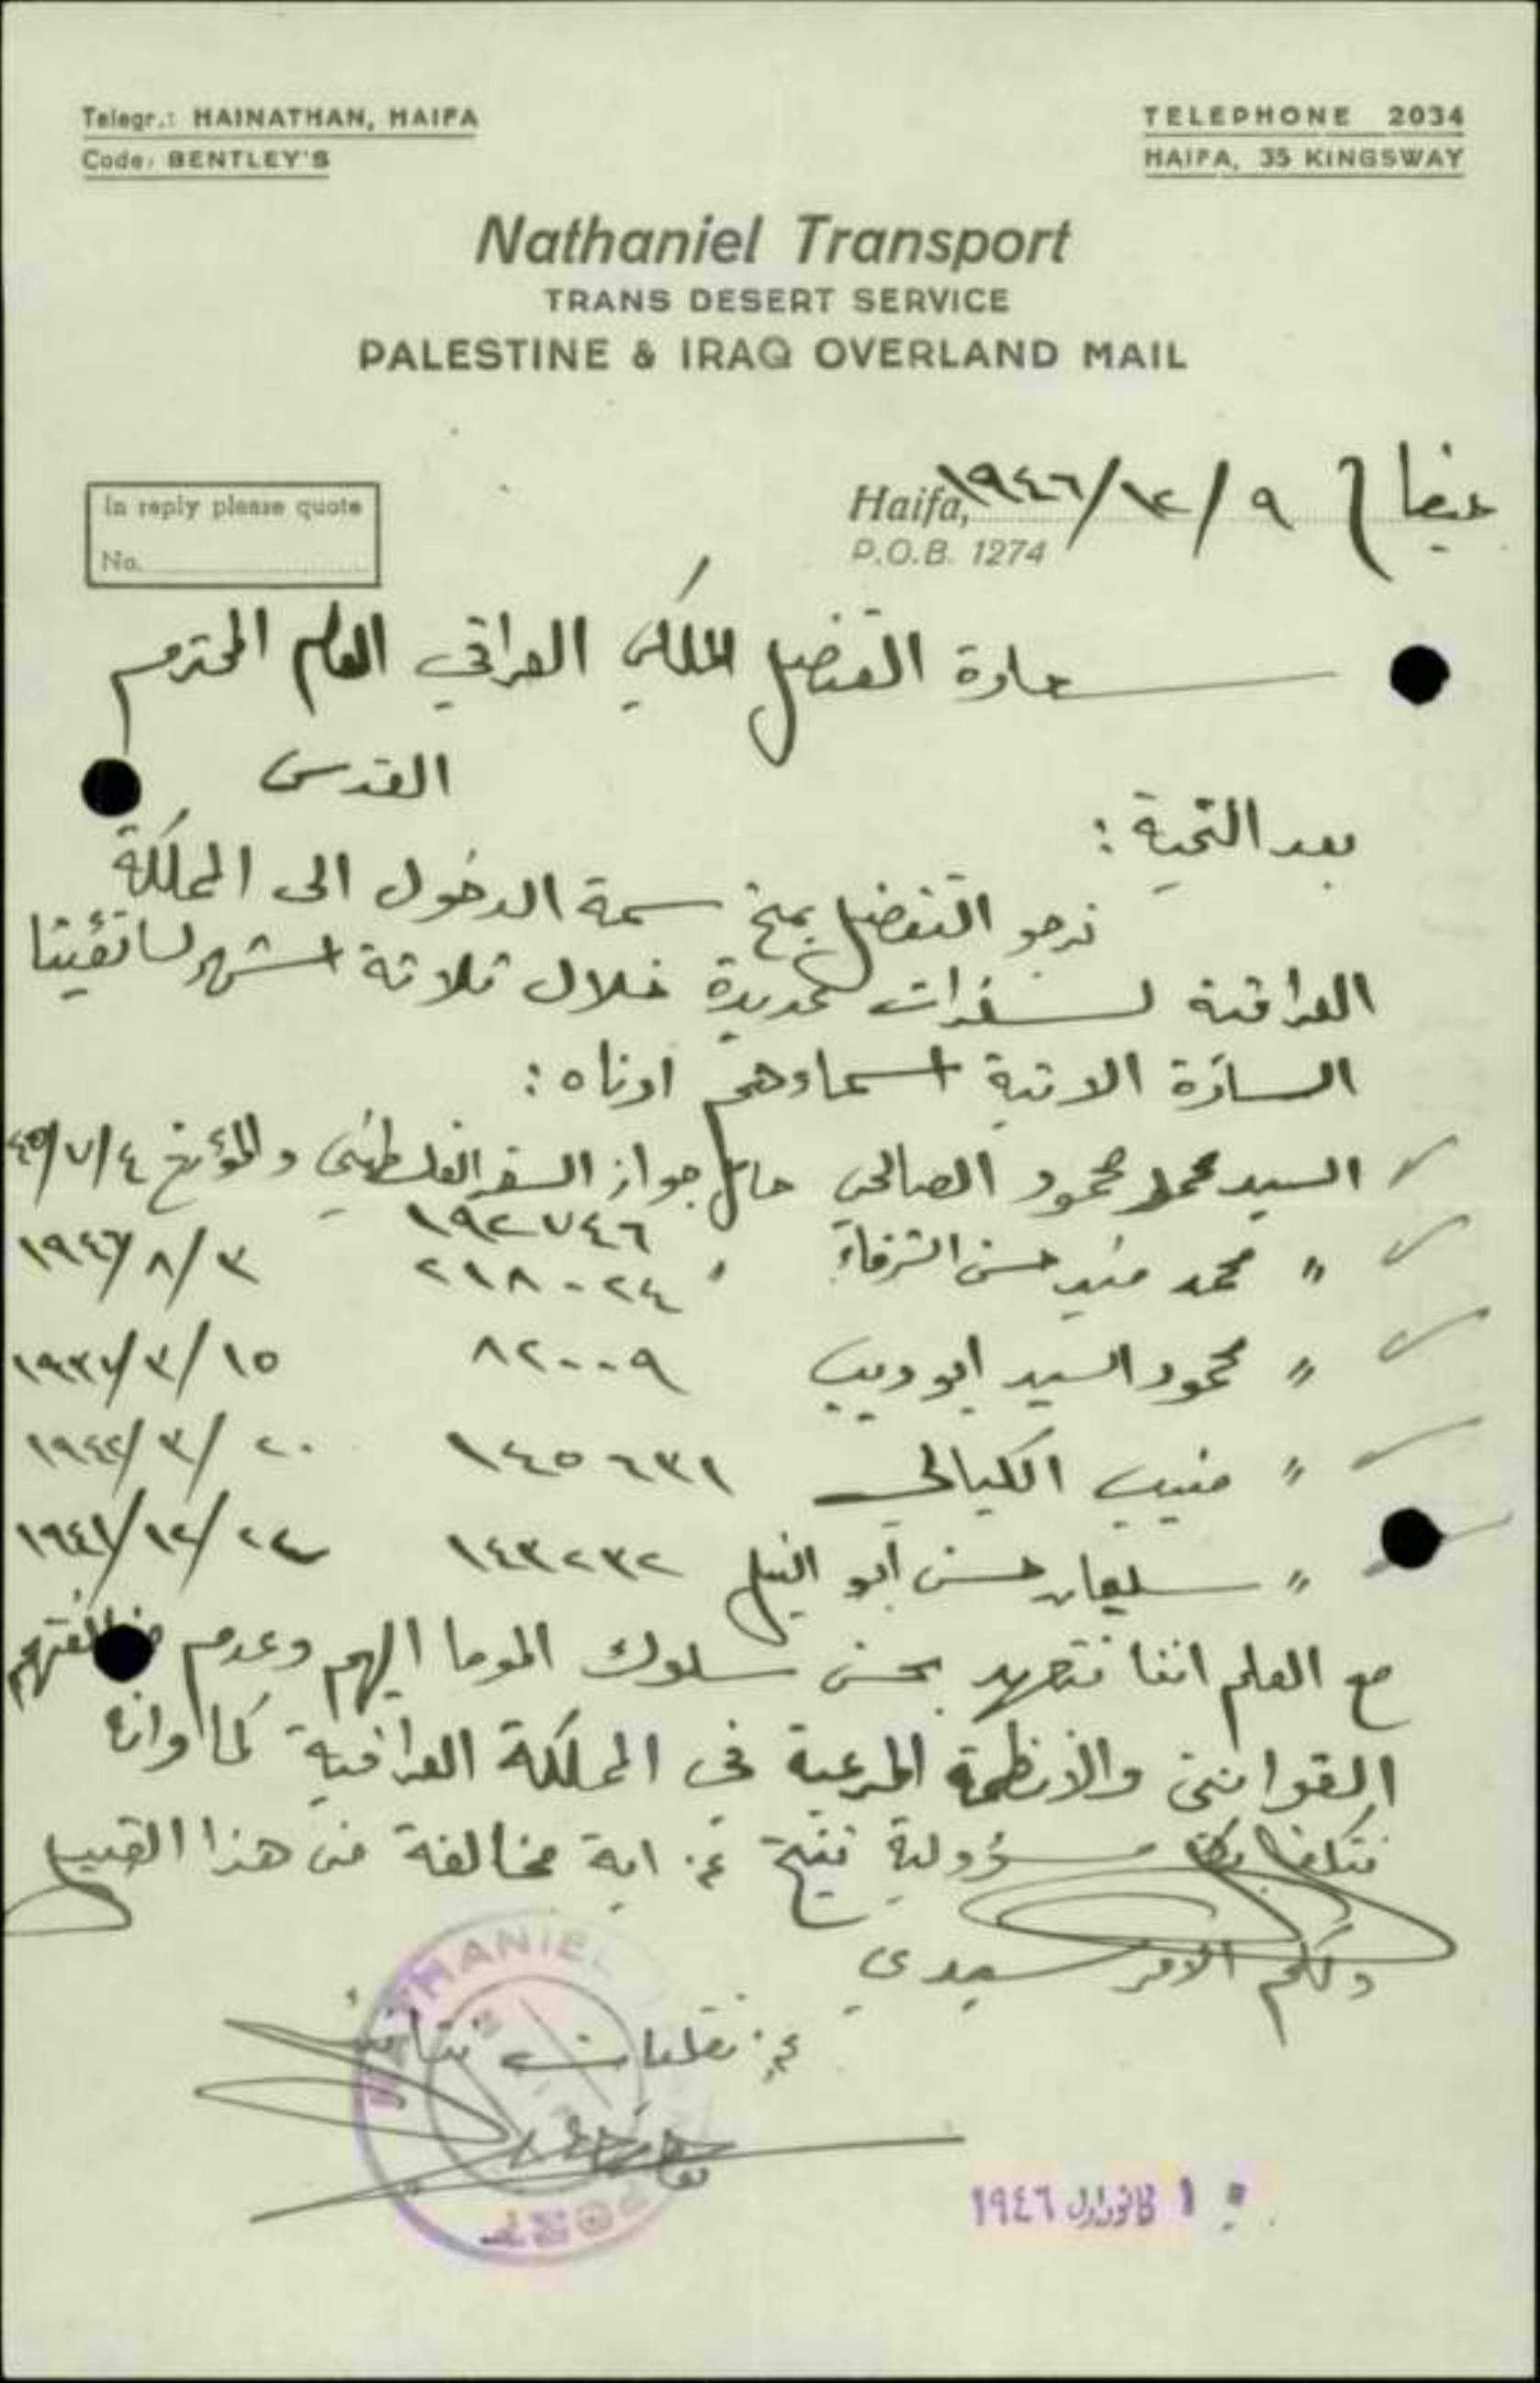 Telegr.: HAINATHAN, HAIFA
Code: BENTLEY'S
TELEPHONE 2034
HAIFA, 35 KINGSWAY
Nathaniel Transport
TRANS DESERT SERVICE
PALESTINE & IRAQ OVERLAND MAIL
In reply please quote
No.
حيفا ٩/١٢/١٩٤٦
Haifa,
P.O.B. 1274
سعادة القنصل الملكي العراقي العام المحترم
القدس
بعد التحية :
نرجو التفضل بمنح سمة الدخول الى المملكة
العراقية لسفرات عديدة خلال ثلاثة اشهر لسائقينا
السادة الاتية اسماوهم ادناه :
السيد محمد محمود الصالحي حامل جواز السفر الفلسطيني والمؤرخ ٤/٧/٤٥
١٩٢٧٤٦
" محمد منير حسن الشرفاء ' ٢١٨٠٢٤ ٣/٨/١٩٤٦
" محمود السيد ابو ديب ٨٢٠٠٩ ١٥/٣/١٩٣٧
" منيب الكيالي ١٤٥٦٣١ ٢٠/٣/١٩٤٢
" سليمان حسن ابو النيل ١٤٣٢٣٢ ٢٤/١٢/١٩٤١
مع العلم اننا نتعهد بحسن سلوك الموما اليهم وعدم مخالفتهم
القوانين والانظمة المرعية في المملكة العراقية كما واننا
نتكفل بكل مسؤولية تنتج عن اية مخالفة من هذا القبيل
ولكم الامر سيدي
عن نقليات نتانيل
NATHANIEL
١٠ كانون اول ١٩٤٦